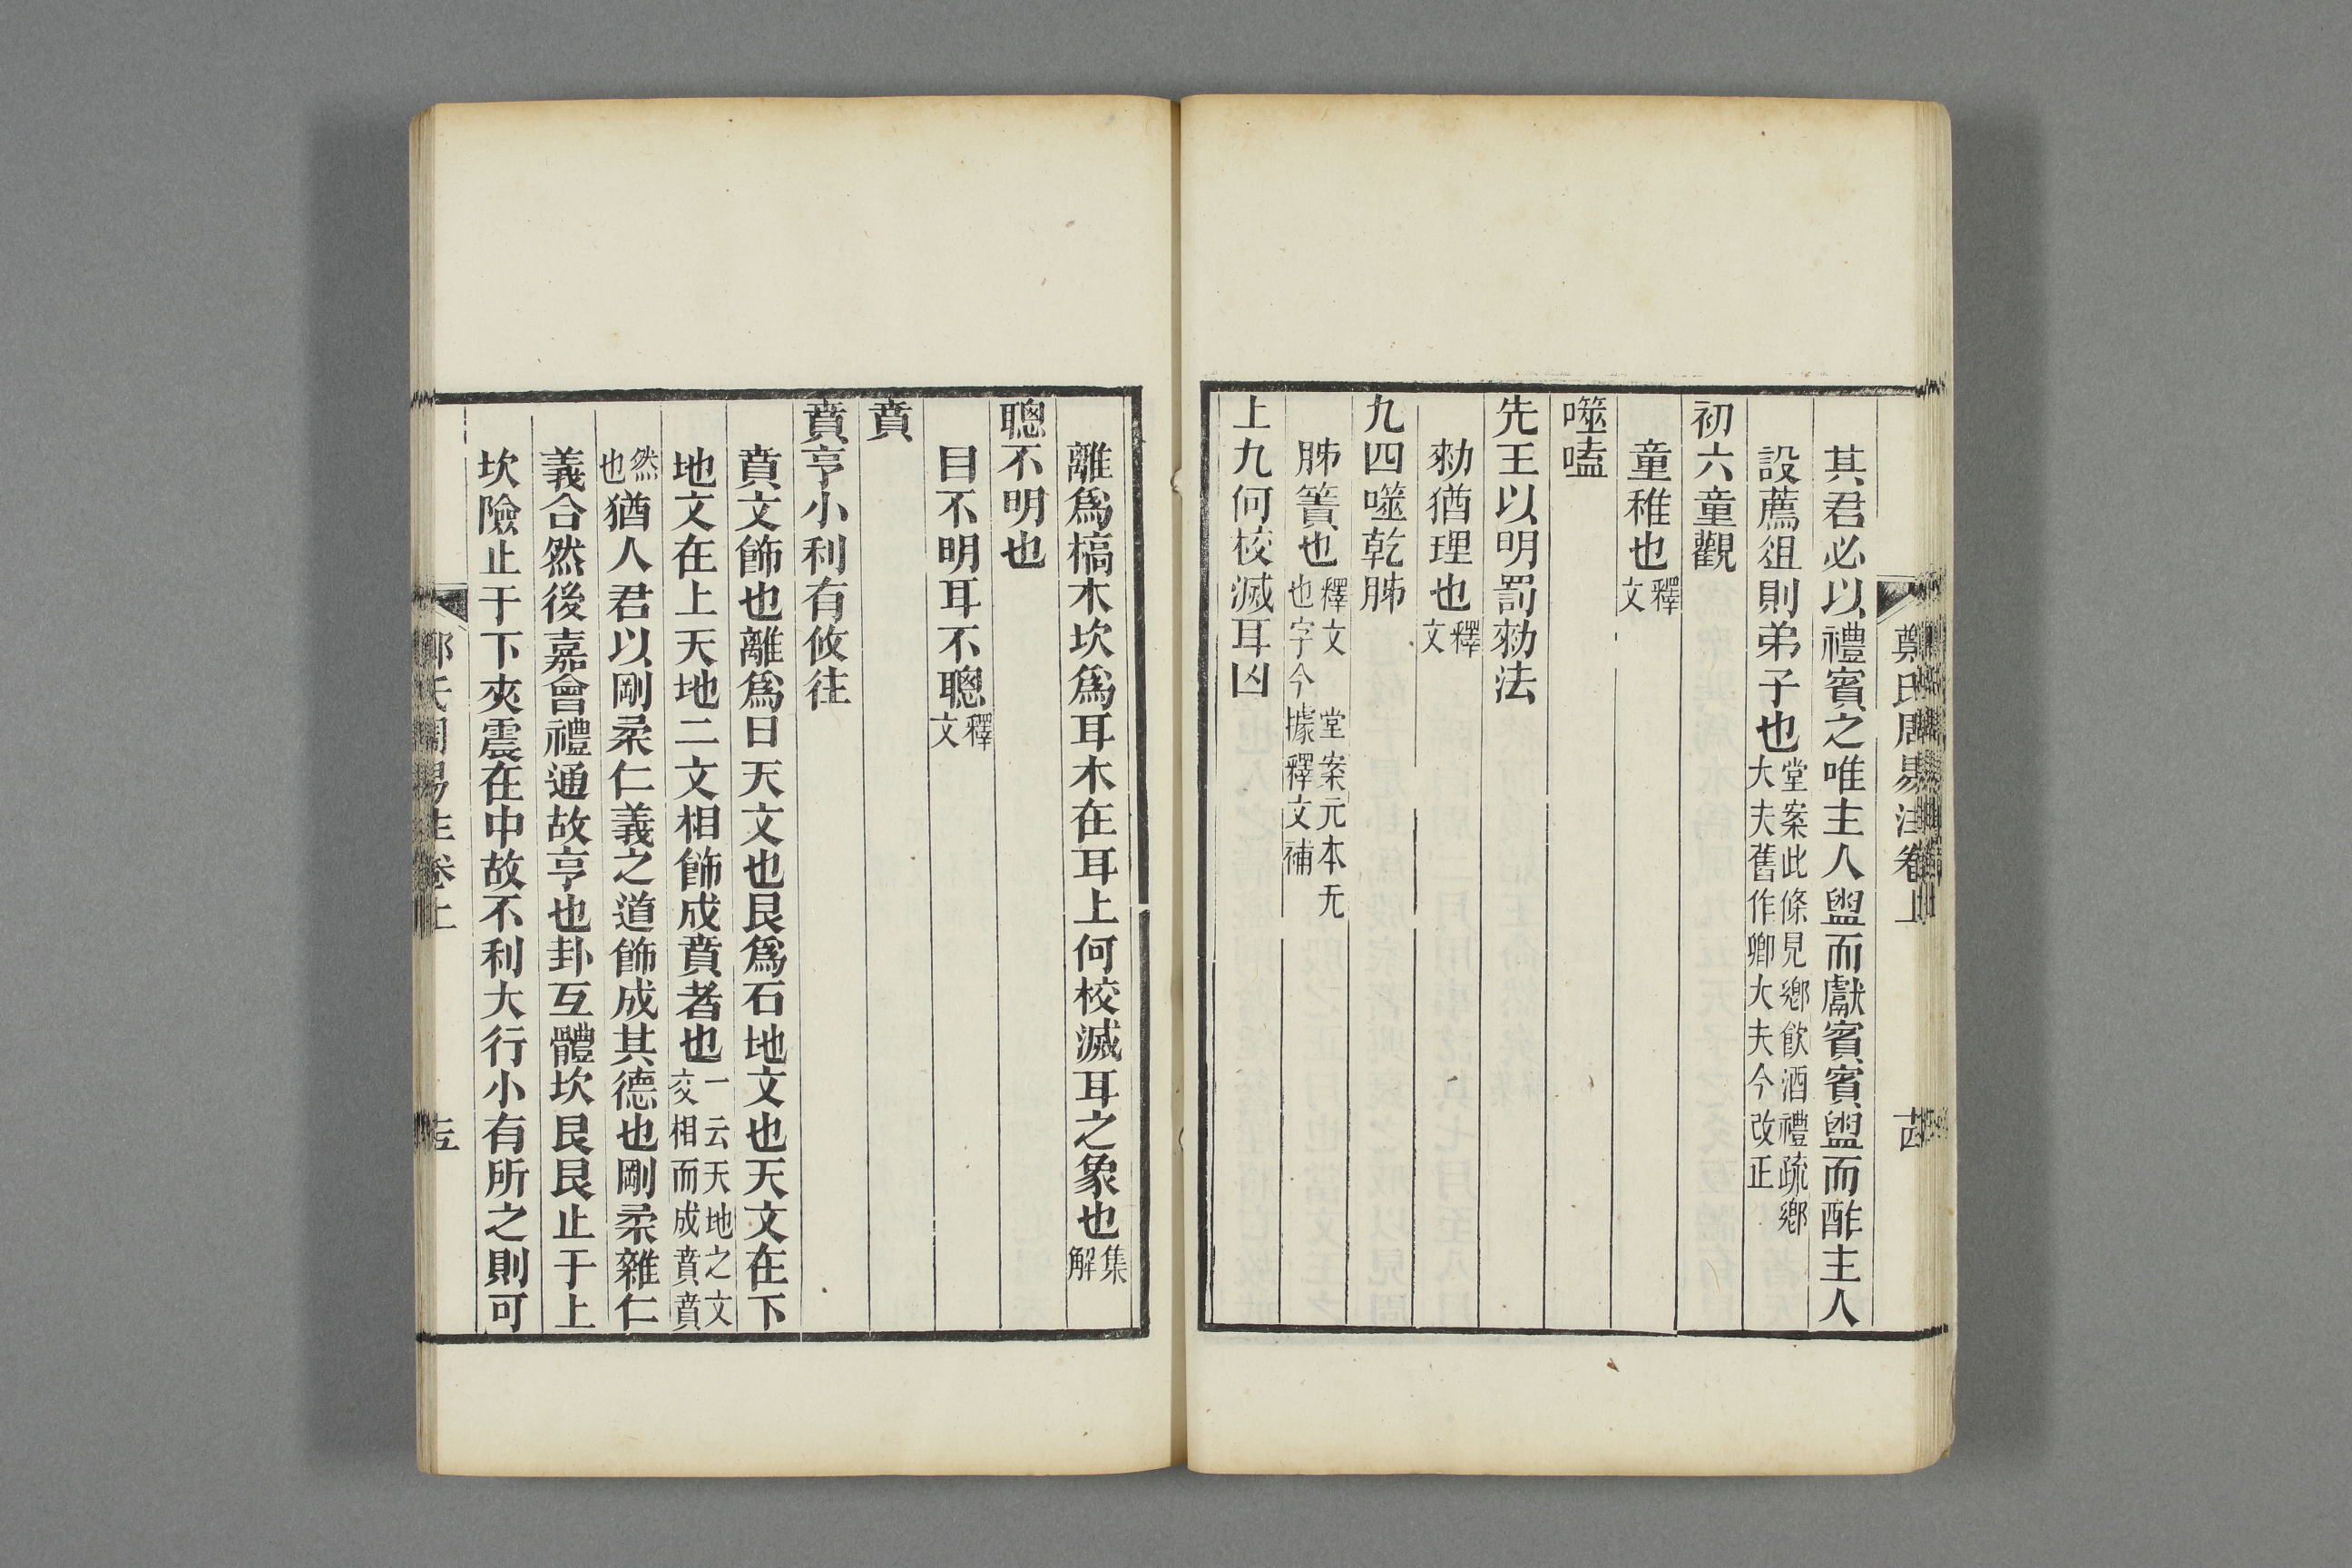 鄭氏周易注卷上
其君必以禮賓之唯主人盥而獻賓賓盥而酢主人
設薦俎則弟子也堂案此條見鄉飲酒禮疏鄉大夫舊作卿大夫今改正
初六童觀
童稚也釋文
噬嗑
先王以明罰勑法
勑猶理也釋文
九四噬乾胏
胏簀也釋文 堂案元本无也字今據釋文補
上九何校滅耳凶
離爲槁木坎爲耳木在耳上何校滅耳之象也集解
聰不明也
目不明耳不聰釋文
賁
賁亨小利有攸往
賁文飾也離爲日天文也艮爲石地文也天文在下
地文在上天地二文相飾成賁者也一云天地之文交相而成賁賁
然也猶人君以剛柔仁義之道飾成其德也剛柔雜仁
義合然後嘉會禮通故亨也卦互體坎艮艮止于上
坎險止于下夾震在中故不利大行小有所之則可